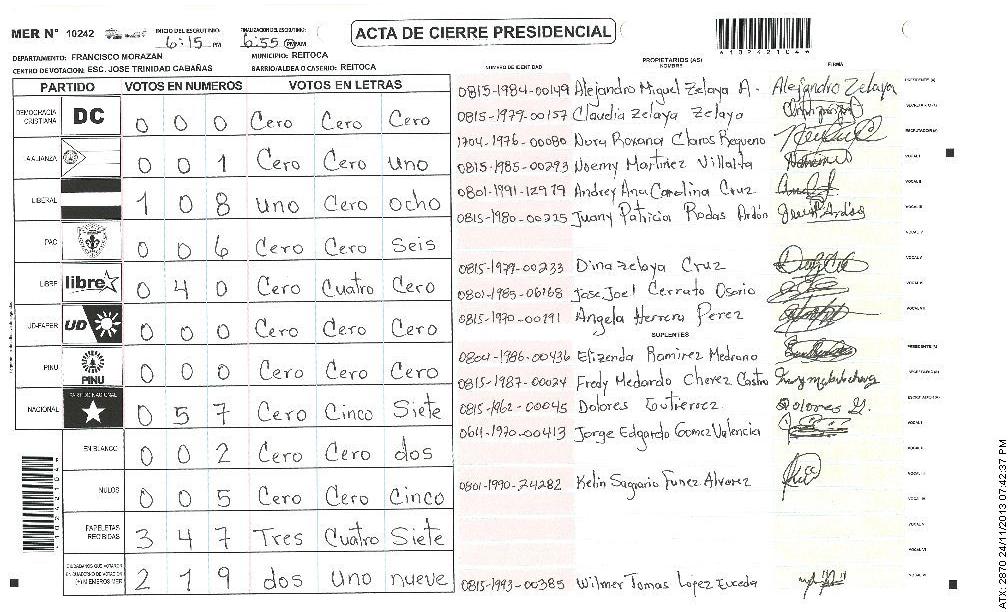 MER N° 10242 INICIO DEL ESCRUTINIO: 6:15 PM FINALIZACION DEL ESCRUTINIO: 6:55 PM AM
ACTA DE CIERRE PRESIDENCIAL
4102421044
DEPARTAMENTO: FRANCISCO MORAZAN MUNICIPIO: REITOCA
CENTRO DE VOTACION: ESC. JOSE TRINIDAD CABAÑAS BARRIO/ALDEA O CASERIO: REITOCA
PARTIDO VOTOS EN NUMEROS VOTOS EN LETRAS
DEMOCRACIA CRISTIANA DC 0 0 0 Cero Cero Cero
ALIANZA 0 0 1 Cero Cero uno
LIBERAL 1 0 8 uno Cero ocho
PAC 0 0 6 Cero Cero Seis
LIBRE libre 0 4 0 Cero Cuatro Cero
UD-FAPER UD 0 0 0 Cero Cero Cero
PINU PINU 0 0 0 Cero Cero Cero
NACIONAL PARTIDO NACIONAL 0 5 7 Cero Cinco Siete
EN BLANCO 0 0 2 Cero Cero dos
NULOS 0 0 5 Cero Cero Cinco
PAPELETAS RECIBIDAS 3 4 7 Tres Cuatro Siete
CIUDADANOS QUE VOTARON EN CUADERNO DE VOTACION (+) MIEMBROS MER 2 1 9 dos uno nueve
PROPIETARIOS (AS)
NUMERO DE IDENTIDAD NOMBRE FIRMA
0815-1984-00149 Alejandro Miguel Zelaya A. Alejandro Zelaya PRESIDENTE (A)
0815-1979-00157 Claudia Zelaya Zelaya SECRETARIO (A)
1704-1976-00080 Nora Roxana Claros Requeno ESCRUTADOR (A)
0815-1985-00293 Noemy Martinez Villalta VOCAL I
0801-1991-12979 Andrey Ana Carolina Cruz VOCAL II
0815-1980-00225 Juany Patricia Rodas Ardón VOCAL III
VOCAL IV
0815-1979-00233 Dina Zelaya Cruz VOCAL V
0801-1985-06168 Jose Joel Cerrato Osorio VOCAL VI
0815-1970-00191 Angela Herrera Perez VOCAL VII
SUPLENTES
0804-1986-00436 Elizenda Ramirez Medrano PRESIDENTE (A)
0815-1987-00024 Fredy Medardo Cherez Castro SECRETARIO (A)
0815-1962-00045 Dolores Gutierrez Dolores G. ESCRUTADOR (A)
0611-1970-00413 Jorge Edgardo Gomez Valencia VOCAL I
0801-1990-24282 Kelin Sagrario Funez Alvarez VOCAL III
VOCAL IV
VOCAL V
VOCAL VI
0815-1993-00385 Wilmer Tomas Lopez Euceda VOCAL VII
ATX-2970 24/11/2013 07:42:37 PM